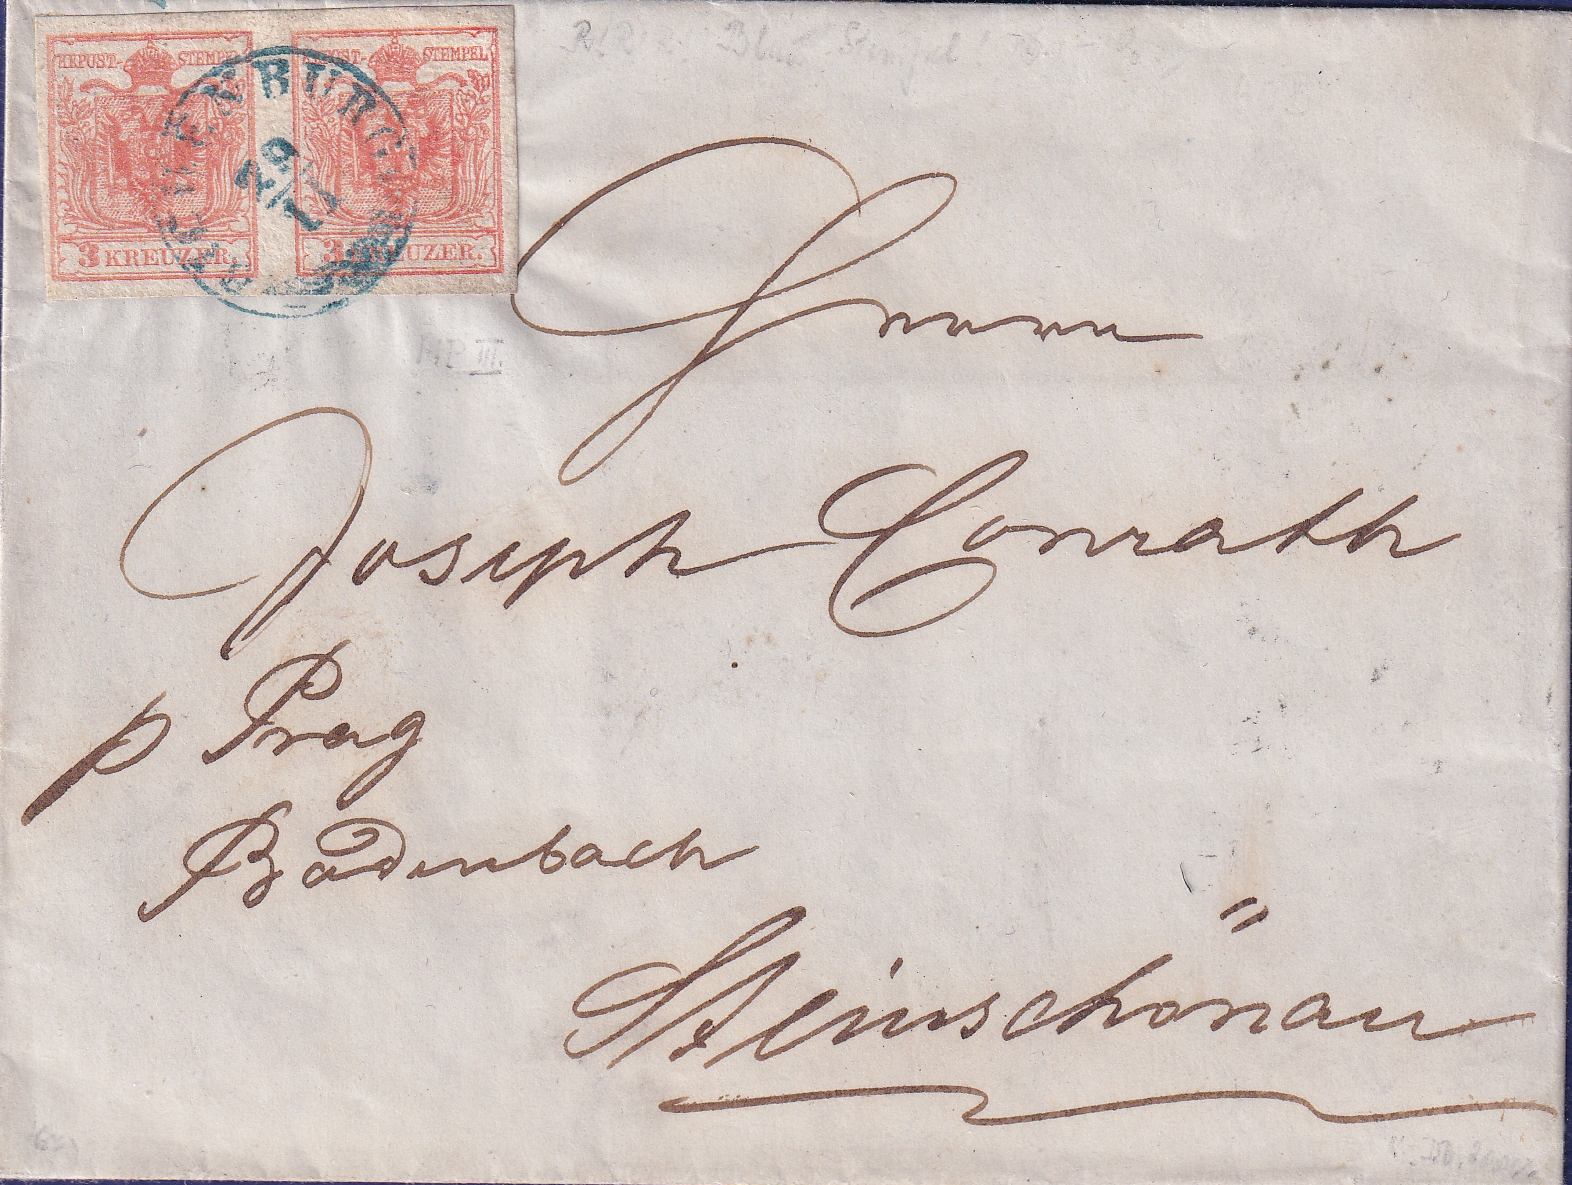 KK POST-STEMPEL
3 KREUZER.
KK POST-STEMPEL
3 KREUZER.
REICHENBURG
29/7
Blau Stempel
MP III.
Herrn
Joseph Conrath
p Prag
Bodenbach
Steinschönau